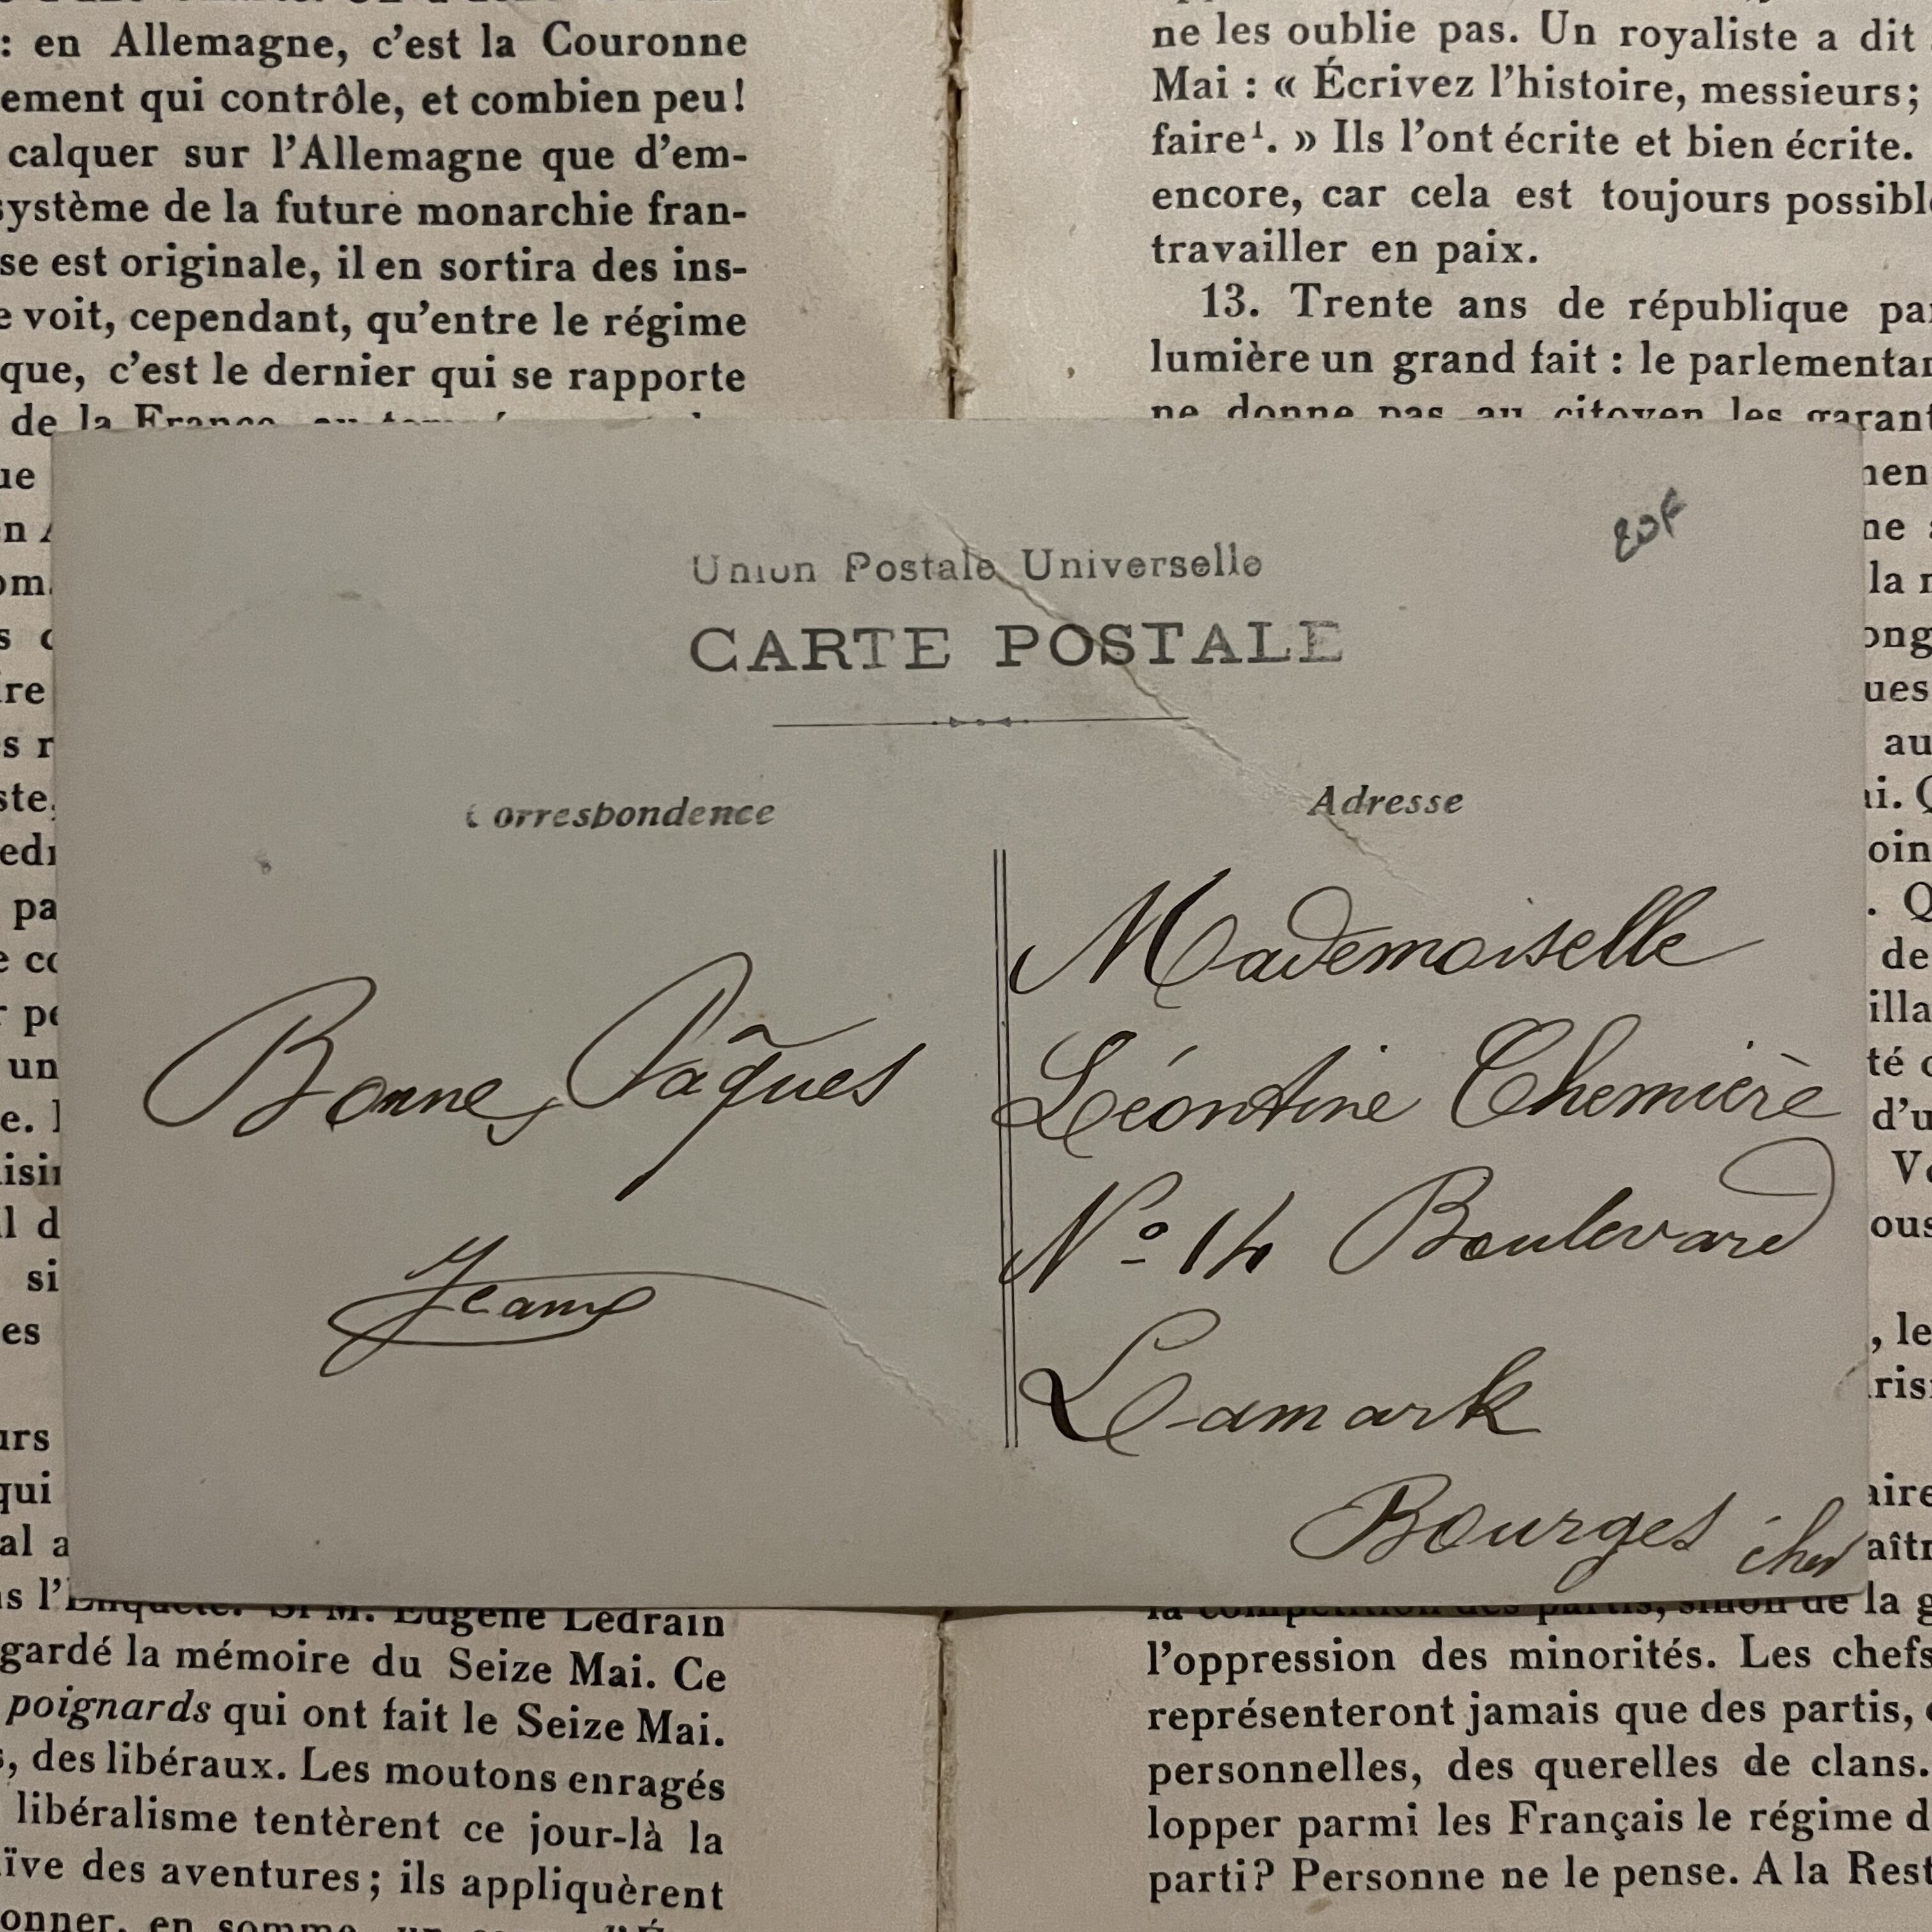 : en Allemagne, c'est la Couronne
ement qui contrôle, et combien peu!
calquer sur l'Allemagne que d'em-
système de la future monarchie fran-
se est originale, il en sortira des ins-
e voit, cependant, qu'entre le régime
que, c'est le dernier qui se rapporte
de la France,
ne les oublie pas. Un royaliste a dit
Mai : « Écrivez l'histoire, messieurs;
faire¹. » Ils l'ont écrite et bien écrite.
encore, car cela est toujours possible
travailler en paix.
13. Trente ans de république par
lumière un grand fait : le parlementar
ne donne pas au citoyen les garant
20F
Union Postale Universelle
CARTE POSTALE
Correspondence
Adresse
Bonnes Pâques
Jeanne
Mademoiselle
Léontine Chemière
Nº 14 Boulevard
Lamark
Bourges cher
s l'Enquête. Si M. Eugène Ledrain
gardé la mémoire du Seize Mai. Ce
poignards qui ont fait le Seize Mai.
s, des libéraux. Les moutons enragés
libéralisme tentèrent ce jour-là la
ïve des aventures; ils appliquèrent
onner, en somme, un
la compétition des partis, sinon de la g
l'oppression des minorités. Les chefs
représenteront jamais que des partis,
personnelles, des querelles de clans.
lopper parmi les Français le régime d
parti? Personne ne le pense. A la Rest